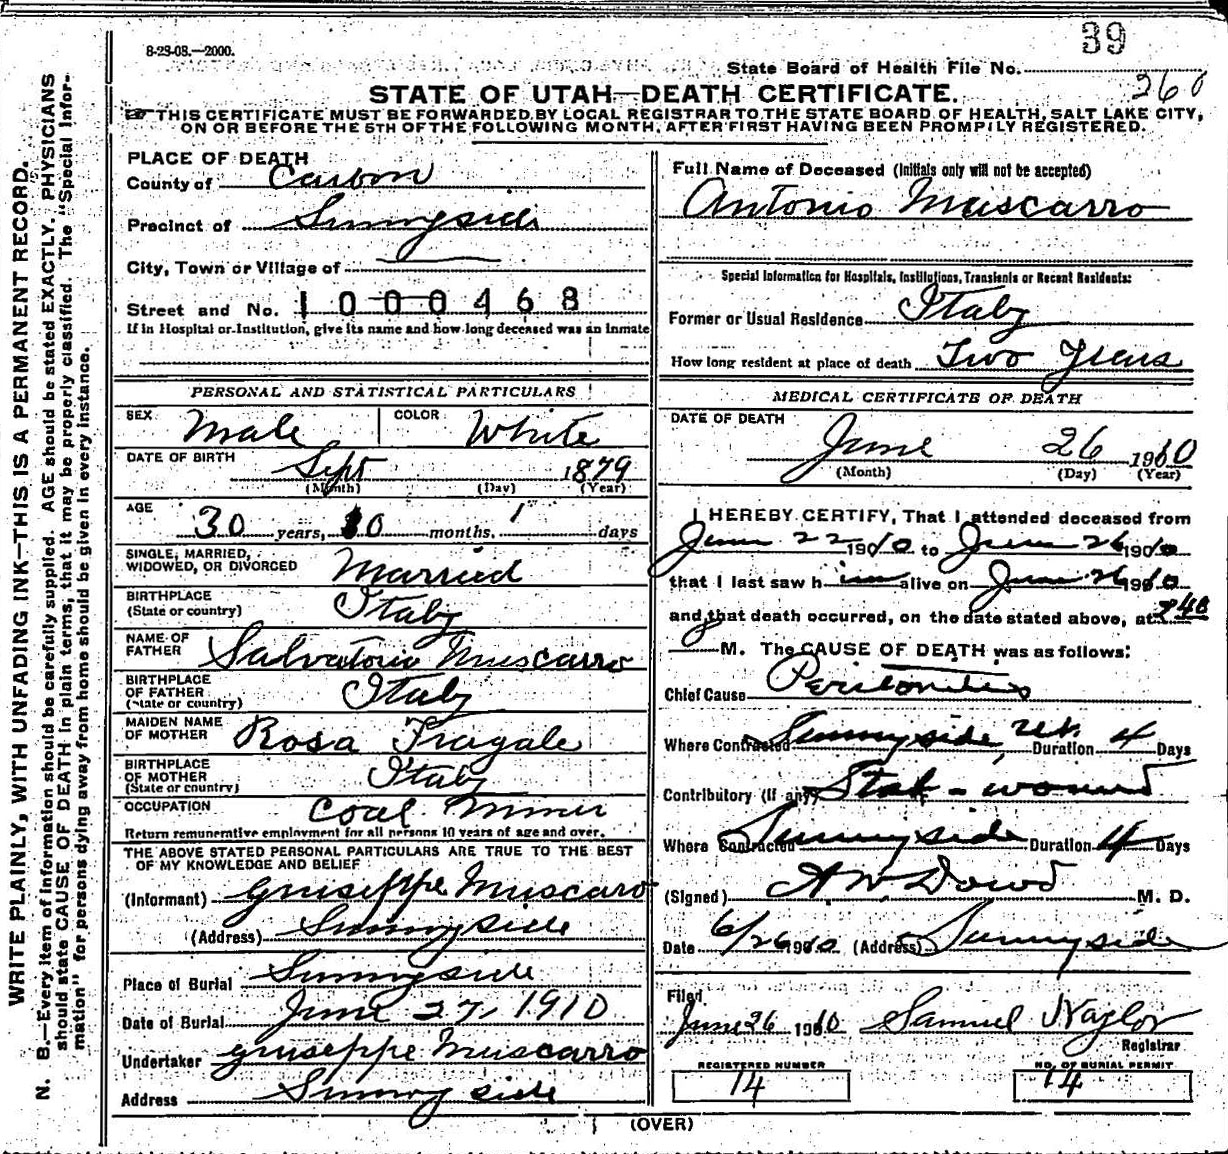 39
8-23-08.—2000.
State Board of Health File No.
260
STATE OF UTAH—DEATH CERTIFICATE.
THIS CERTIFICATE MUST BE FORWARDED BY LOCAL REGISTRAR TO THE STATE BOARD OF HEALTH, SALT LAKE CITY,
ON OR BEFORE THE 5TH OF THE FOLLOWING MONTH, AFTER FIRST HAVING BEEN PROMPTLY REGISTERED.
WRITE PLAINLY, WITH UNFADING INK—THIS IS A PERMANENT RECORD.
N. B.—Every item of information should be carefully supplied. AGE should be stated EXACTLY. PHYSICIANS
should state CAUSE OF DEATH in plain terms, that it may be properly classified. The "Special Infor-
mation" for persons dying away from home should be given in every instance.
PLACE OF DEATH
County of Carbon
Precinct of Sunnyside
City, Town or Village of
Street and No. 1000468
If in Hospital or Institution, give its name and how long deceased was an inmate
PERSONAL AND STATISTICAL PARTICULARS
SEX Male COLOR White
DATE OF BIRTH Sept 1879
(Month) (Day) (Year)
AGE 30 years, 10 months, 1 days
SINGLE, MARRIED,
WIDOWED, OR DIVORCED Married
BIRTHPLACE
(State or country) Italy
NAME OF
FATHER Salvatorio Muscarro
BIRTHPLACE
OF FATHER
(State or country) Italy
MAIDEN NAME
OF MOTHER Rosa Fragale
BIRTHPLACE
OF MOTHER
(State or country) Italy
OCCUPATION Coal Miner
Return remunerative employment for all persons 10 years of age and over.
THE ABOVE STATED PERSONAL PARTICULARS ARE TRUE TO THE BEST
OF MY KNOWLEDGE AND BELIEF
(Informant) Giuseppe Muscaro
(Address) Sunnyside
Place of Burial Sunnyside
Date of Burial June 27, 1910
Undertaker Giuseppe Muscarro
Address Sunnyside
Full Name of Deceased (Initials only will not be accepted)
Antonio Muscarro
Special Information for Hospitals, Institutions, Transients or Recent Residents:
Former or Usual Residence Italy
How long resident at place of death Two Years
MEDICAL CERTIFICATE OF DEATH
DATE OF DEATH
June 26 1910
(Month) (Day) (Year)
I HEREBY CERTIFY, That I attended deceased from
June 22 1910 to June 26 1910
that I last saw him alive on June 26 1910
and that death occurred, on the date stated above, at 240
M. The CAUSE OF DEATH was as follows:
Chief Cause Peritonitis
Where Contracted Sunnyside, Ut. Duration 4 Days
Contributory (if any) Stab-wound
Where Contracted Sunnyside Duration 4 Days
(Signed) A W Dowd M. D.
Date 6/26 1910 (Address) Sunnyside
Filed
June 26 1910 Samuel Naylor
Registrar
REGISTERED NUMBER
14
NO. OF BURIAL PERMIT
14
(OVER)